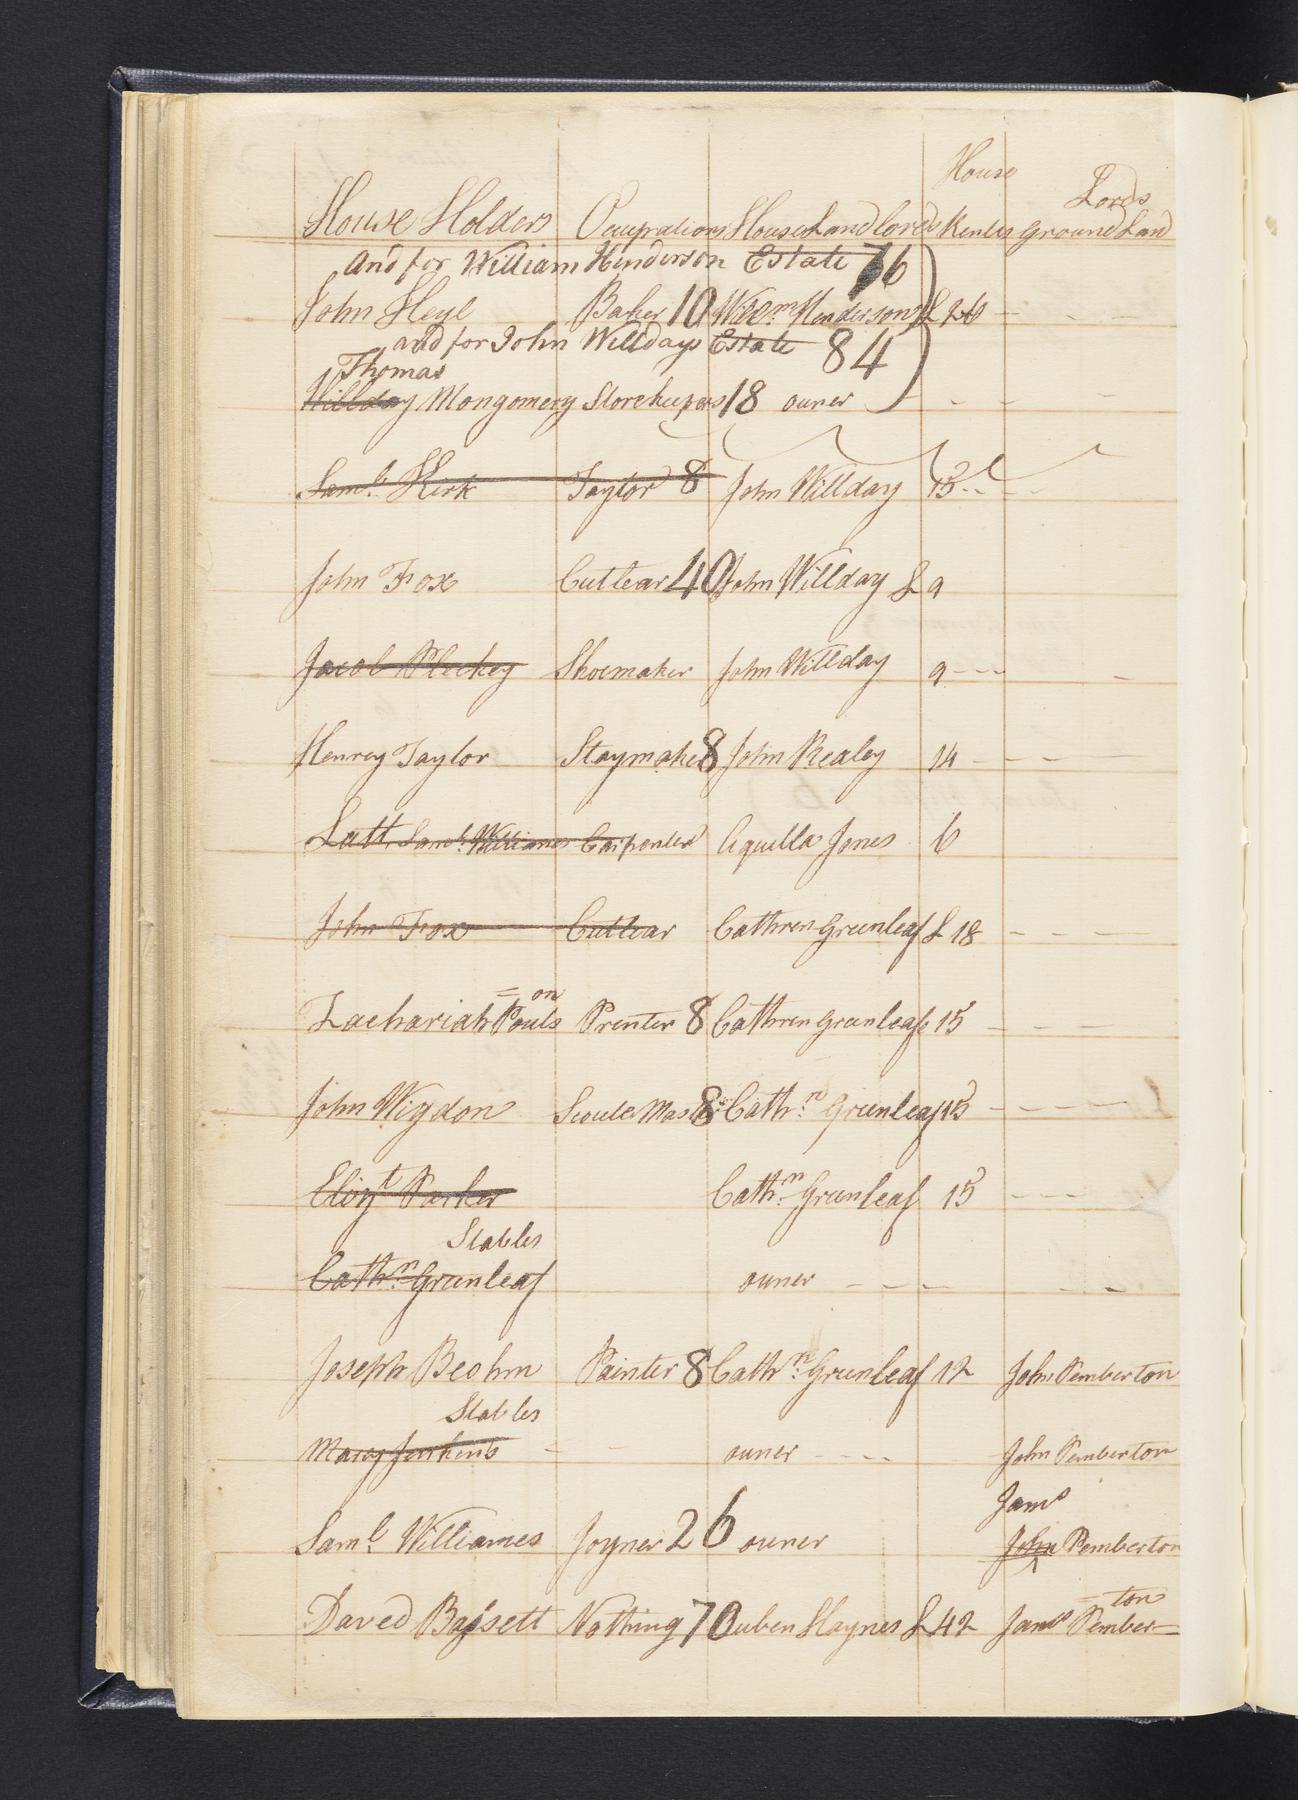 House
Lords
House Holders Ocupations House Landlords Rents Ground Land
and for William Henderson Estate 76
John Heyl Baker 10 Willm Henderson £ 26 - - -
and for John Willdays Estate 84
Thomas
Willday Mongomery Storekeepers 18 owner - - -
Saml. Kirk Taylor 8 John Willday 15 - - -
John Fox Cuttear 40 John Willday £ 9
Jacob Pleckey Shoemaker John Willday 9 - - - -
Henrey Taylor Staymaker 8 John Kealey 14 - - -
Latt Saml. Williames Carpenter Aquilla Jones 6
John Fox Cuttear Cathren Greenleaf £ 18 - - -
= on
Zachariah Pouls Prenter 8 Cathren Greenleafe 15 - - -
John Wigdon Scoule Master 8 Cathrn. Greenleaf 15 - - - -
Elizt Parker Cathrn. Greenleaf 15 - - -
Stables
Cathrn. Greenleaf owner - - - - -
Joseph Beohm Painter 8 Cathrn. Greenleaf 12 John Pemberton
Stables
Marey Jenkens - - owner - - - - John Pemberton
Jams
Saml. Williames Joyner 26 owner John Pemberton
^
= ton
Daved Bassett Nothing 70 Ruben Haynes £ 42 Jams Pember